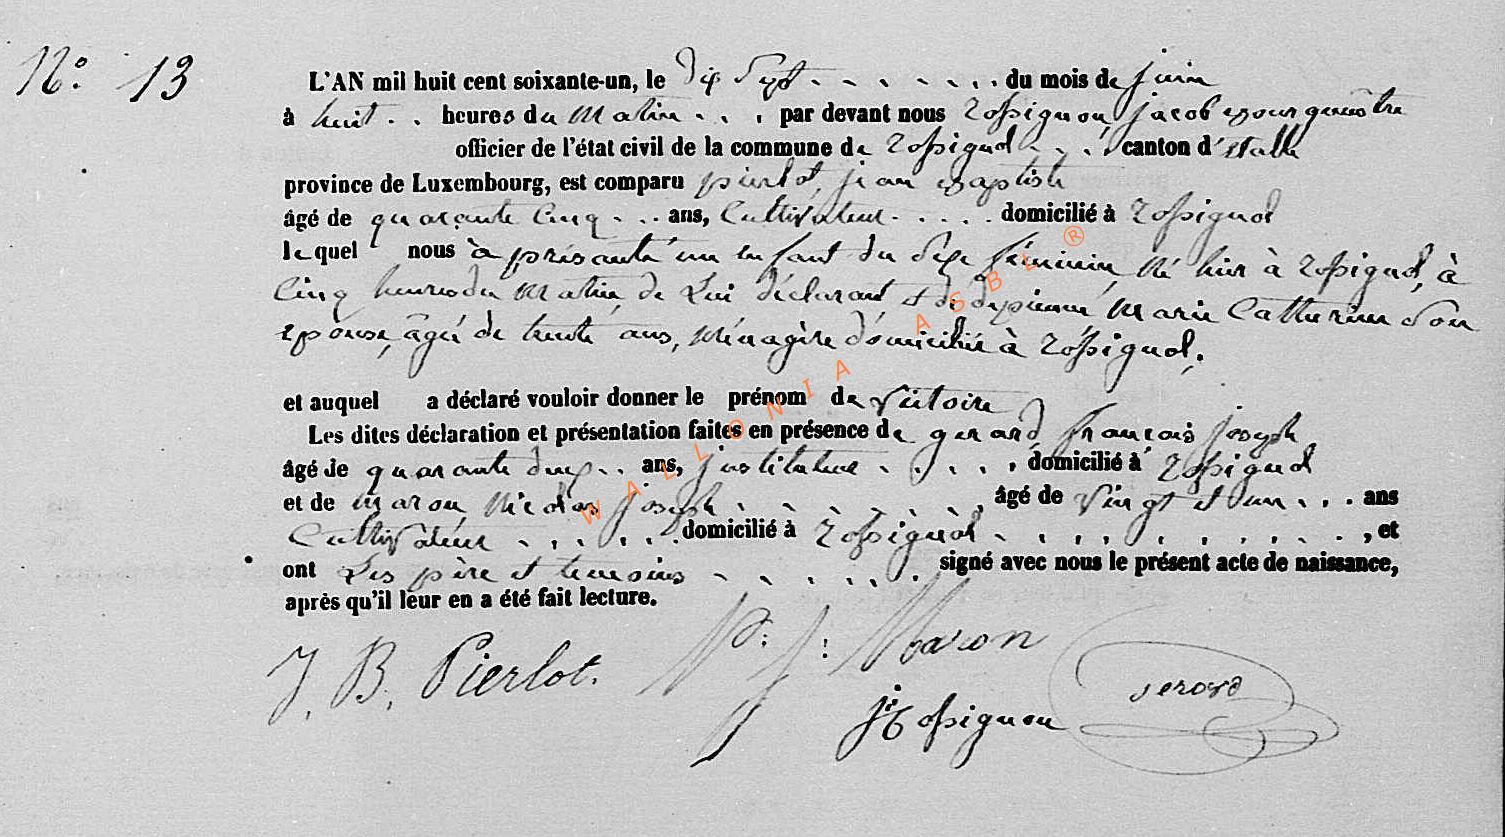 N°. 13
L'AN mil huit cent soixante-un, le dix Sept du mois de juin
à huit heures du Matin par devant nous Rossignon, jacob Bourguemètre
officier de l'état civil de la commune de Rossignol canton d'Etalle
province de Luxembourg, est comparu pierlot, jean Baptiste
âgé de quarante Cinq ans, Cultivateur domicilié à Rossignol
lequel nous à présenté un enfant du Sexe féminin, Né hier à Rossignol, à
Cinq heures du Matin, de Lui déclarant et de Marie Catherine Son
épouse, âgée de trente ans, Ménagère domiciliée à Rossignol.
et auquel a déclaré vouloir donner le prénom de Victoire
Les dites déclaration et présentation faites en présence de gerard, françois joseph
âgé de quarante deux ans, instituteur domicilié à Rossignol
et de Maron, Nicolas joseph, âgé de Vingt et un ans
Cultivateur domicilié à Rossignol, et
ont Les père et temoins signé avec nous le présent acte de naissance,
après qu'il leur en a été fait lecture.
J. B. Pierlot. N: J: Maron
Gerard
J Rossignon
WALLONIA ASBL ®